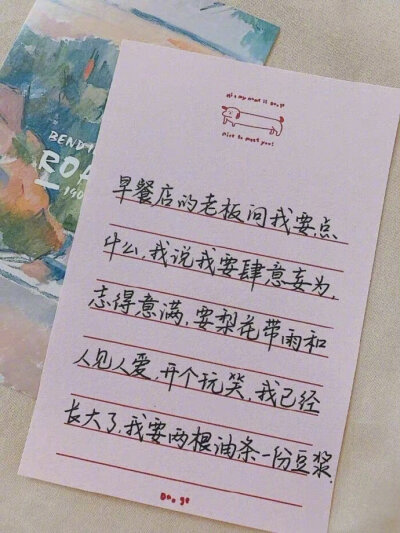 BEND
Hi! my name is Doo.g
Nice to meet you!
早餐店的老板问我要点
什么,我说我要肆意妄为,
志得意满,要梨花带雨和
人见人爱,开个玩笑,我已经
长大了,我要两根油条一份豆浆.
Doo.ge